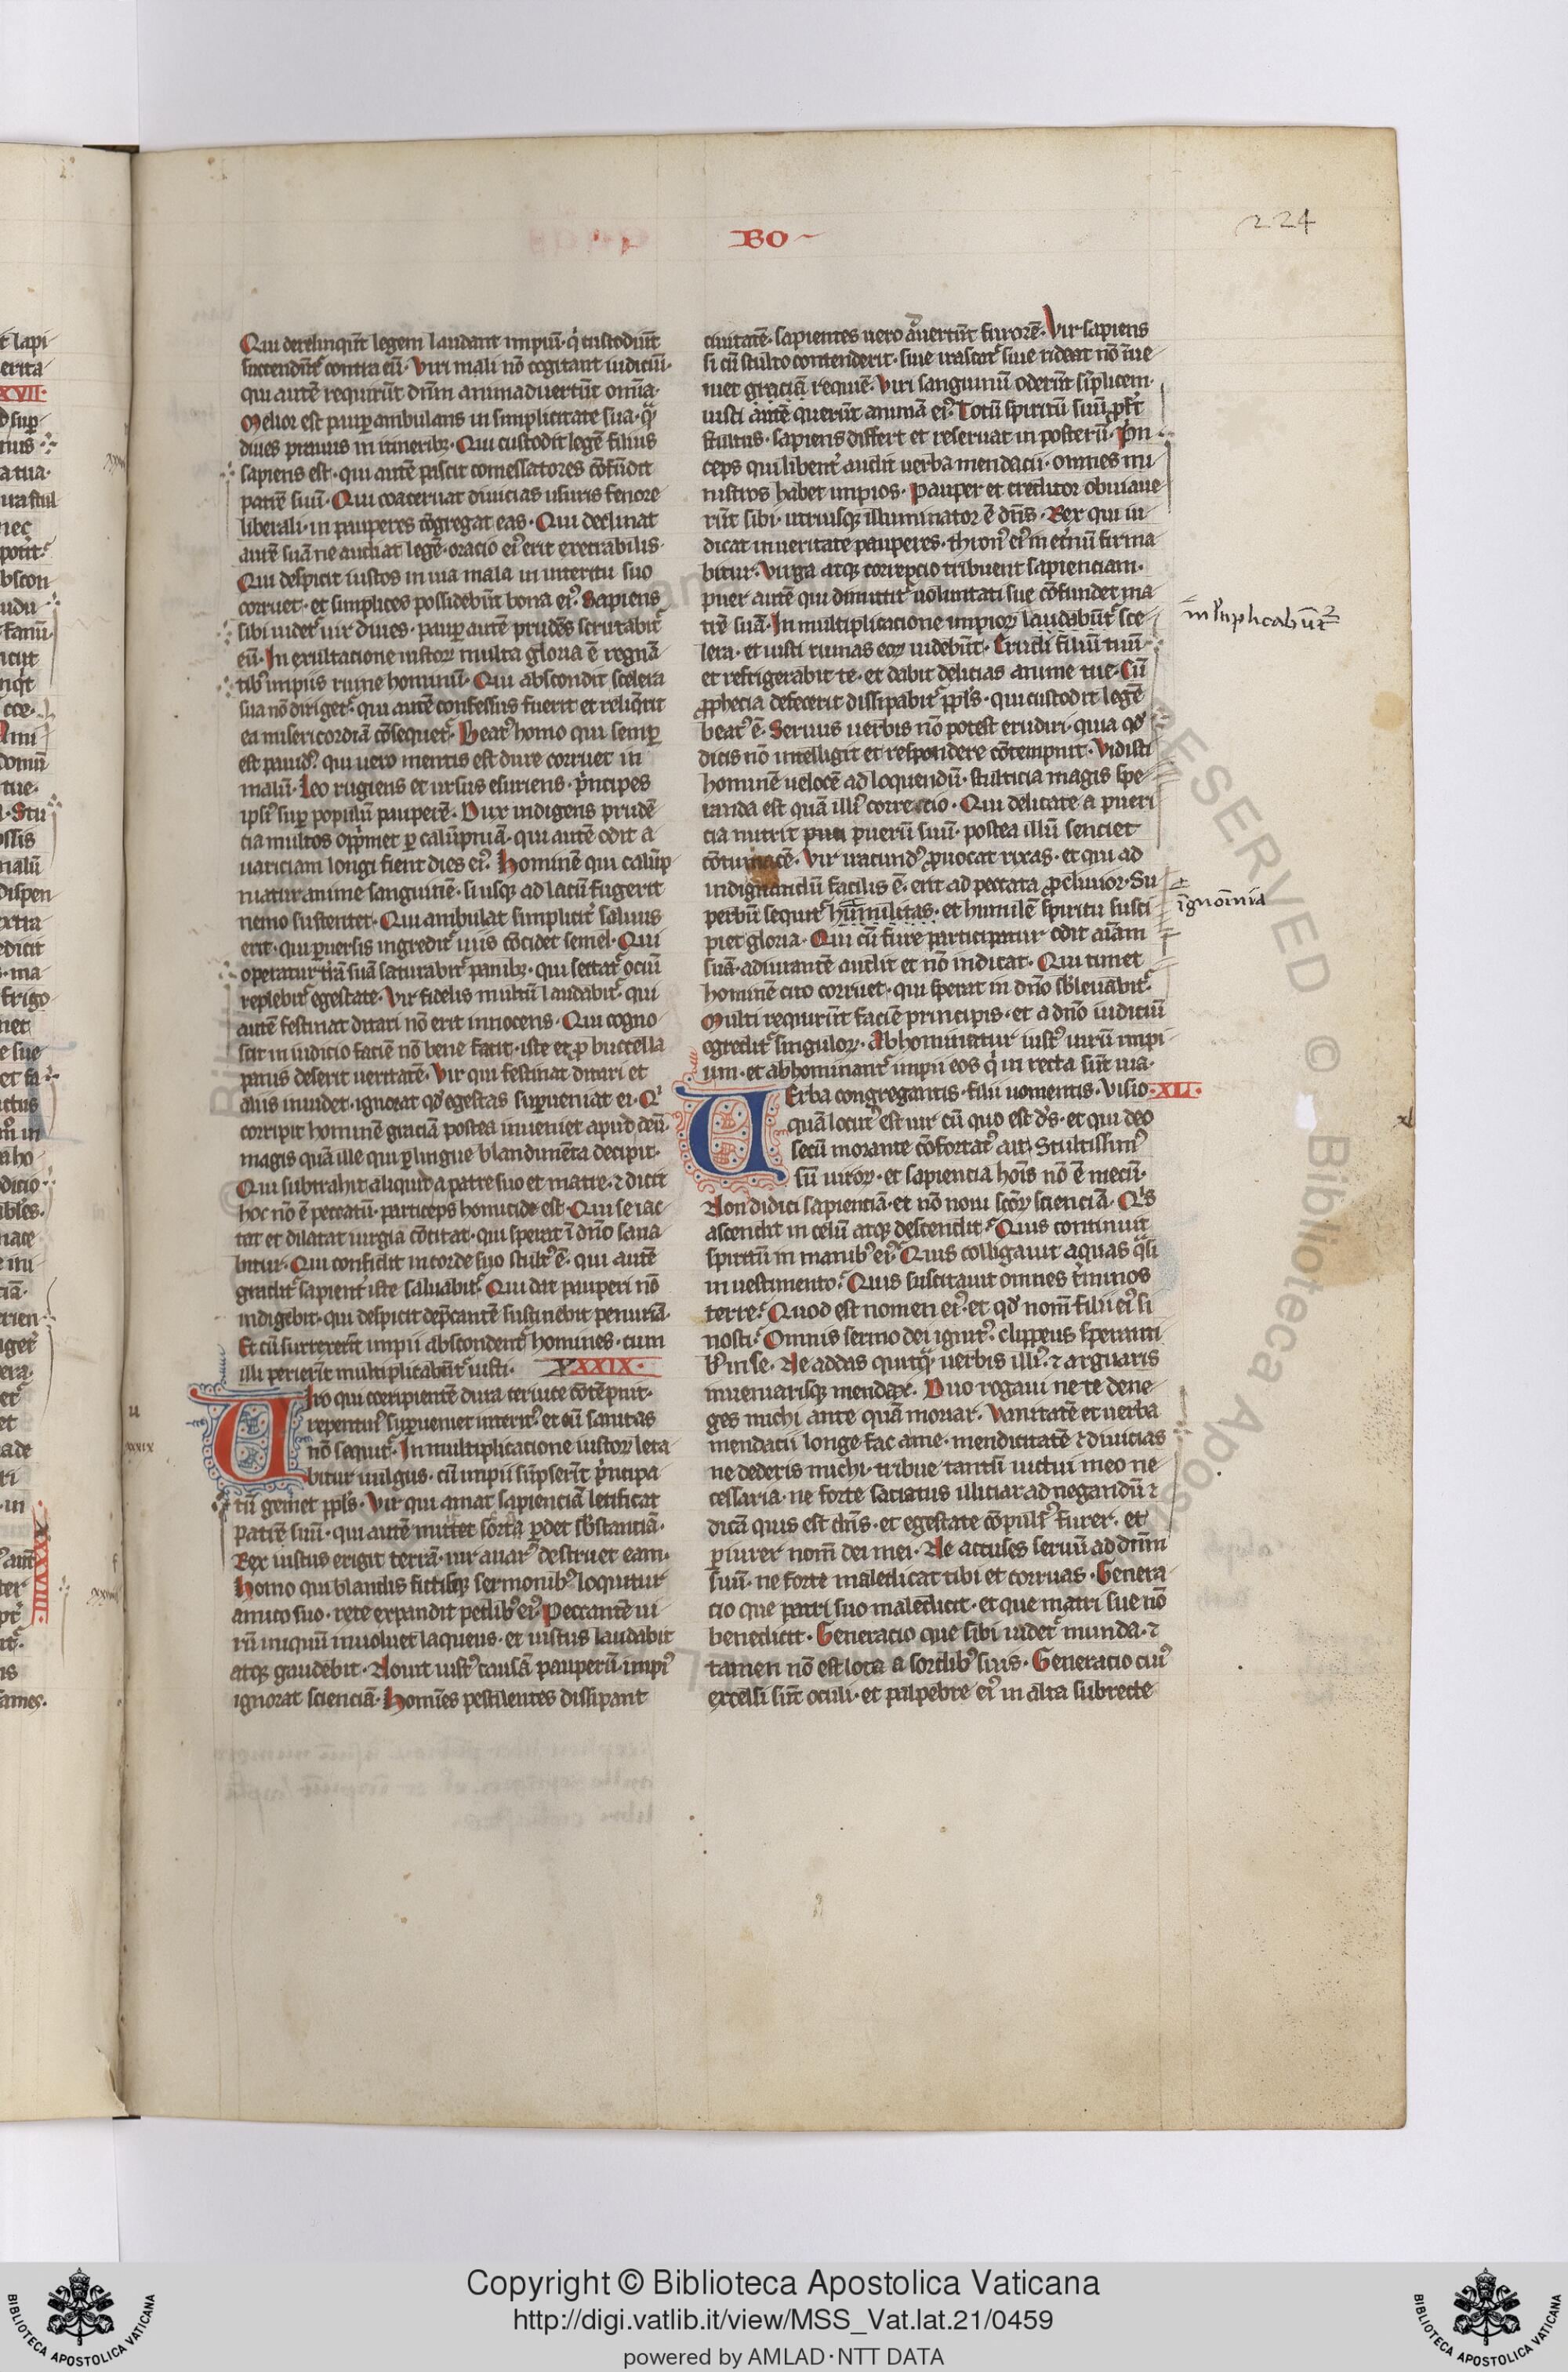 BO
224
Qui derelinqūt legem laudant impiū· q̇ custodiūt
succendūtᷣ contra eū· Viri mali nō cogitant iudiciū·
qui autē requirūt dn̄m animaduertūt om̄ia·
Melior est paup̄ ambulans in simplicitate sua· qᷓ
diues prauus in itineribꝫ· Qui custodit legē filius
sapiens est· qui autē pascit comessatores cōfūdit
patrē suū· Qui coaceruat diuicias usuris fenore
liberali· in pauperes cōgregat eas· Qui declinat
autē suā ne audiat legē· oracio eiꝰ erit execrabilis·
Qui despicit iustos in uia mala in interitu suo
corruet· et simplices possidebūt bona eiꝰ· Sapiens
sibi uidetᷣ uir diues· paup̄ autē prudēs scrutabitᷣ
eū· In exultacione iustoꝝ multa gloria ē regnā
tibꝰ impiis ruine hominū· Qui abscondit scelera
sua nō dirigetᷣ· qui autē confessus fuerit et reliq̄rit
ea misericordiā cōsequetᷣ· Beatꝰ homo qui semꝑ
est pauidꝰ· qui uero mentis est dure corruet in
malū· Leo rugiens et ursus esuriens· pⁱncipes
ipsiꝰ sup̄ populū pauperē· Dux indigens prudē
cia multos opp̄met ꝑ calūpniā· qui autē odit a
uariciam longi fient dies eiꝰ· Hominē qui calūp
niatur anime sanguinē· si usqꝫ ad lacū fugerit
nemo sustentet· Qui ambulat simplicitᷣ saluus
erit· qui ꝑuersis ingreditᷣ uiis cōcidet semel· Qui
operatur tr̄ā suā saturabitᷣ panibꝫ· qui sectatᷣ ociū
replebitᷣ egestate· Vir fidelis multū laudabitᷣ· qui
autē festinat ditari nō erit innocens· Qui cogno
scit in iudicio faciē nō bene facit· iste et ꝓ buccella
panis deserit ueritatē· Vir qui festinat ditari et
aliis inuidet· ignorat qđ egestas suꝑueniat ei· Qⁱ
corripit hominē graciā postea inueniet apud deū·
magis quā ille qui ꝑ lingue blandimēta decipit·
Qui subtrahit aliquid a patre suo et matre· ⁊ dicit
hoc nō ē peccatū· particeps homicide est· Qui se iac
tat et dilatat iurgia cōcitat· qui sperat ī dn̄o sana
bitur· Qui confidit in corde suo stultꝰ ē· qui autē
graditᷣ sapientᷣ iste saluabitᷣ· Qui dat pauperi nō
indigebit· qui despicit dep̄cantē sustinebit penuriā·
Et cū surrexerīt impii abscondentᷣ homines· cum
illi perierīt multiplicabūtᷣ iusti· XXXIX·
Uiro qui corripientē dura ceruice cōtēpnit·
repentinꝰ suꝑueniet interitꝰ· et eū sanitas
nō sequitᷣ· In multiplicacione iustoꝝ leta
bitur uulgus· cū impii sūpserīt pⁱncipa
tū gemet ppl̄s· Vir qui amat sapienciā letificat
patrē suū· qui autē nutrit scorta ꝑdet sb̄stanciā·
Rex iustus erigit terrā· uir auarꝰ destruet eam·
Homo qui blandis fictisqꝫ sermonibꝰ loquitur
amico suo· rete expandit pedibꝰ eiꝰ· Peccantē ui
rū iniquū inuoluet laqueus· et iustus laudabit
atqꝫ gaudebit· Nouit iustꝰ causā pauperū· impiꝰ
ignorat scienciā· Homīes pestilentes dissipant
ciuitatē· sapientes uero auertūt furorē· Vir sapiens
si cū stulto contenderit· siue irascatᷣ siue rideat nō īue
niet graciā requiē· Viri sanguinū oderūt sīplicem·
iusti autē querūt animā eiꝰ· Totū spiritū suū ꝓfert
stultus· sapiens differt et reseruat in posterū· Pⁱn
ceps qui libentᷣ audit uerba mendacii· omnes mi
nistros habet impios· Pauper et creditor obuiaue
rūt sibi· utriusqꝫ illuminator ē dn̄s· Rex qui iu
dicat in ueritate pauperes· thronꝰ eiꝰ in et̄nū firma
bitur· Virga atqꝫ correpcio tribuent sapienciam·
puer autē qui dimittitᷣ uoluntati sue cōfundet ma
trē suā· In multiplicacione impioꝝ laudabūtᷣ sce
lera· et iusti ruinas eoꝝ uidebūt· Erudi filiū tuū·
et refrigerabit te· et dabit delicias anime tue· Cū
ꝓphecia defecerit dissipabitᷣ ppl̄s· qui custodit legē
beatꝰ ē· Seruus uerbis nō potest erudiri· quia qđ
dicis nō intelligit et respondere cōtempnit· Vidisti
hominē uelocē ad loquendū· stulticia magis spe
randa est quā illiꝰ correctio· Qui delicate a pueri
cia nutrit puerū suū· postea illū senciet
cōtumacē· Vir iracundꝰ ꝓuocat rixas· et qui ad
indignandū facilis ē· erit ad peccata ꝓcliuior· Su
perbū sequitᷣ humilitas· et humilē spiritu susci
piet gloria· Qui cū fure participatur odit aīam
suā· adiurantē audit et nō indicat· Qui timet
hominē cito corruet· qui sperat in dn̄o sb̄leuabitᷣ·
Multi requirūt faciē principis· et a dn̄o iudiciū
egreditᷣ singuloꝝ· Abhominatur iustꝰ uirū impi
um· et abhominantᷣ impii eos q̇ in recta sūt uia·
Uerba congregantis· filii uomentis· Visio ·XLI·
quā locutꝰ est uir cū quo est ds̄· et qui deo
secū morante cōfortatꝰ ait· Stultissimꝰ
sū uiroꝝ· et sapiencia hoīs nō ē mecū·
Non didici sapienciā· et nō noui sc̄oꝝ scienciā· Qⁱs
ascendit in celū atqꝫ descendit· Quis continuit
spiritū in manibꝰ eiꝰ· Quis colligauit aquas qᷓsi
in uestimento· Quis suscitauit omnes t̄minos
terre· Quod est nomen eiꝰ· et qđ nom̄ filii eiꝰ si
nosti· Omnis sermo dei ignitꝰ· clippeus speranti
bꝰ in se· Ne addas quicqᷓ uerbis illiꝰ· ⁊ arguaris
inueniarisqꝫ mendax· Duo rogaui ne te dene
ges michi ante quā moriar· Vanitatē et uerba
mendacii longe fac a me· mendicitatē ⁊ diuicias
ne dederis michi· tribue tantū uictui meo ne
cessaria· ne forte saciatus illiciar ad negandū ⁊
dicā quis est dn̄s· et egestate cōpulsꝰ furer· et
ꝑiurer nom̄ dei mei· Ne accuses seruū ad dn̄m
suū· ne forte maledicat tibi et corruas· Genera
cio que patri suo maledicit· et que matri sue nō
benedicit· Generacio que sibi uidetᷣ munda· ⁊
tamen nō est lota a sordibꝰ suis· Generacio cuiꝰ
excelsi sūt oculi· et palpebre eiꝰ in alta subrecte
ml̄tiplicabūtᷣ
ignoīnia
xxix
Copyright © Biblioteca Apostolica Vaticana
http://digi.vatlib.it/view/MSS_Vat.lat.21/0459
powered by AMLAD·NTT DATA
BIBLIOTECA APOSTOLICA VATICANA
BIBLIOTECA APOSTOLICA VATICANA